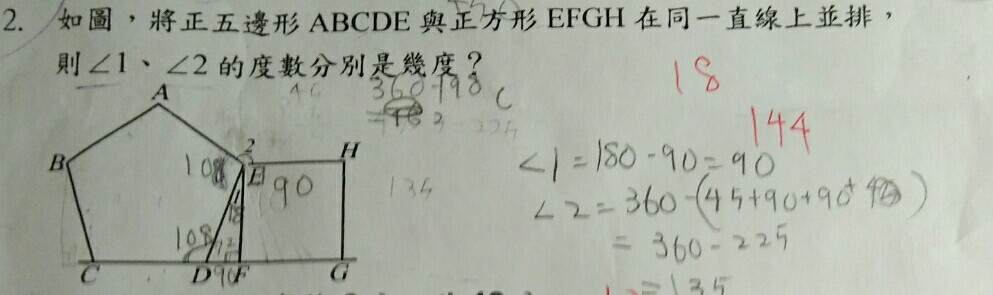 2. 如圖，將正五邊形 ABCDE 與正方形 EFGH 在同一直線上並排，
則∠1、∠2 的度數分別是幾度？
360-198
18
144
A
B
2
E
H
108
90
1
18
134
108
72
90
C
D
F
G
∠1=180-90=90
∠2=360-(45+90+90
=360-225
=135